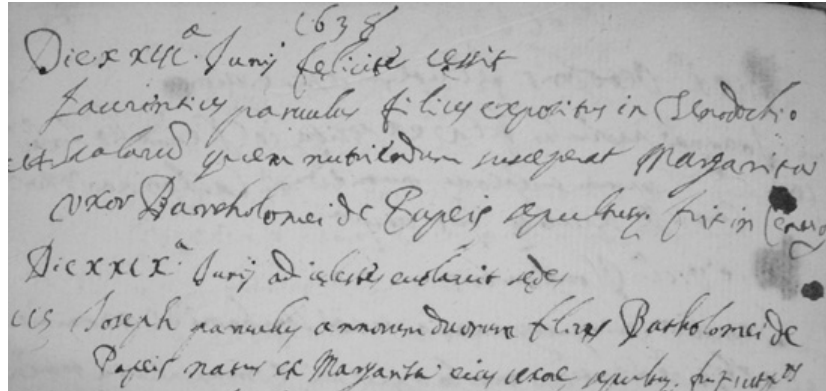 1638
Die xxiii.ª Junij feliciter cessit
Laurentius parvulus filius expositus in Senodochio
Scalarū quem nutriendum susceperat Margarita
uxor Bartholomei de Papeis sepultusq. fuit in
Die xxix.ª Junij ad celestes evolavit sedes
115 Joseph parvulus annorum duorum filius Bartholomei de
Papeis natus ex Margarita eius uxore sepultus fuit